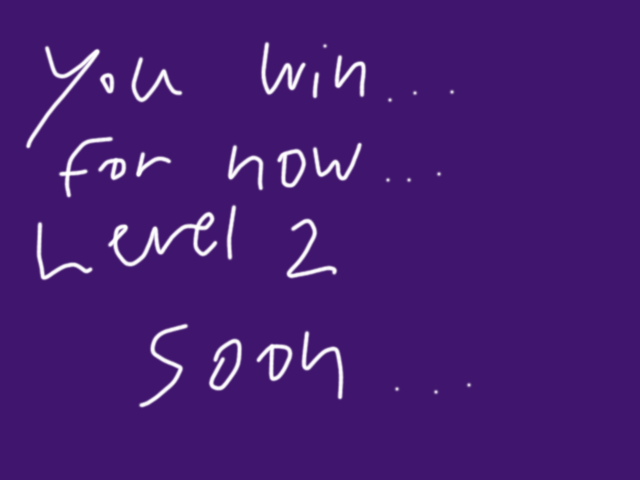 You win...
For now...
Level 2
Soon...